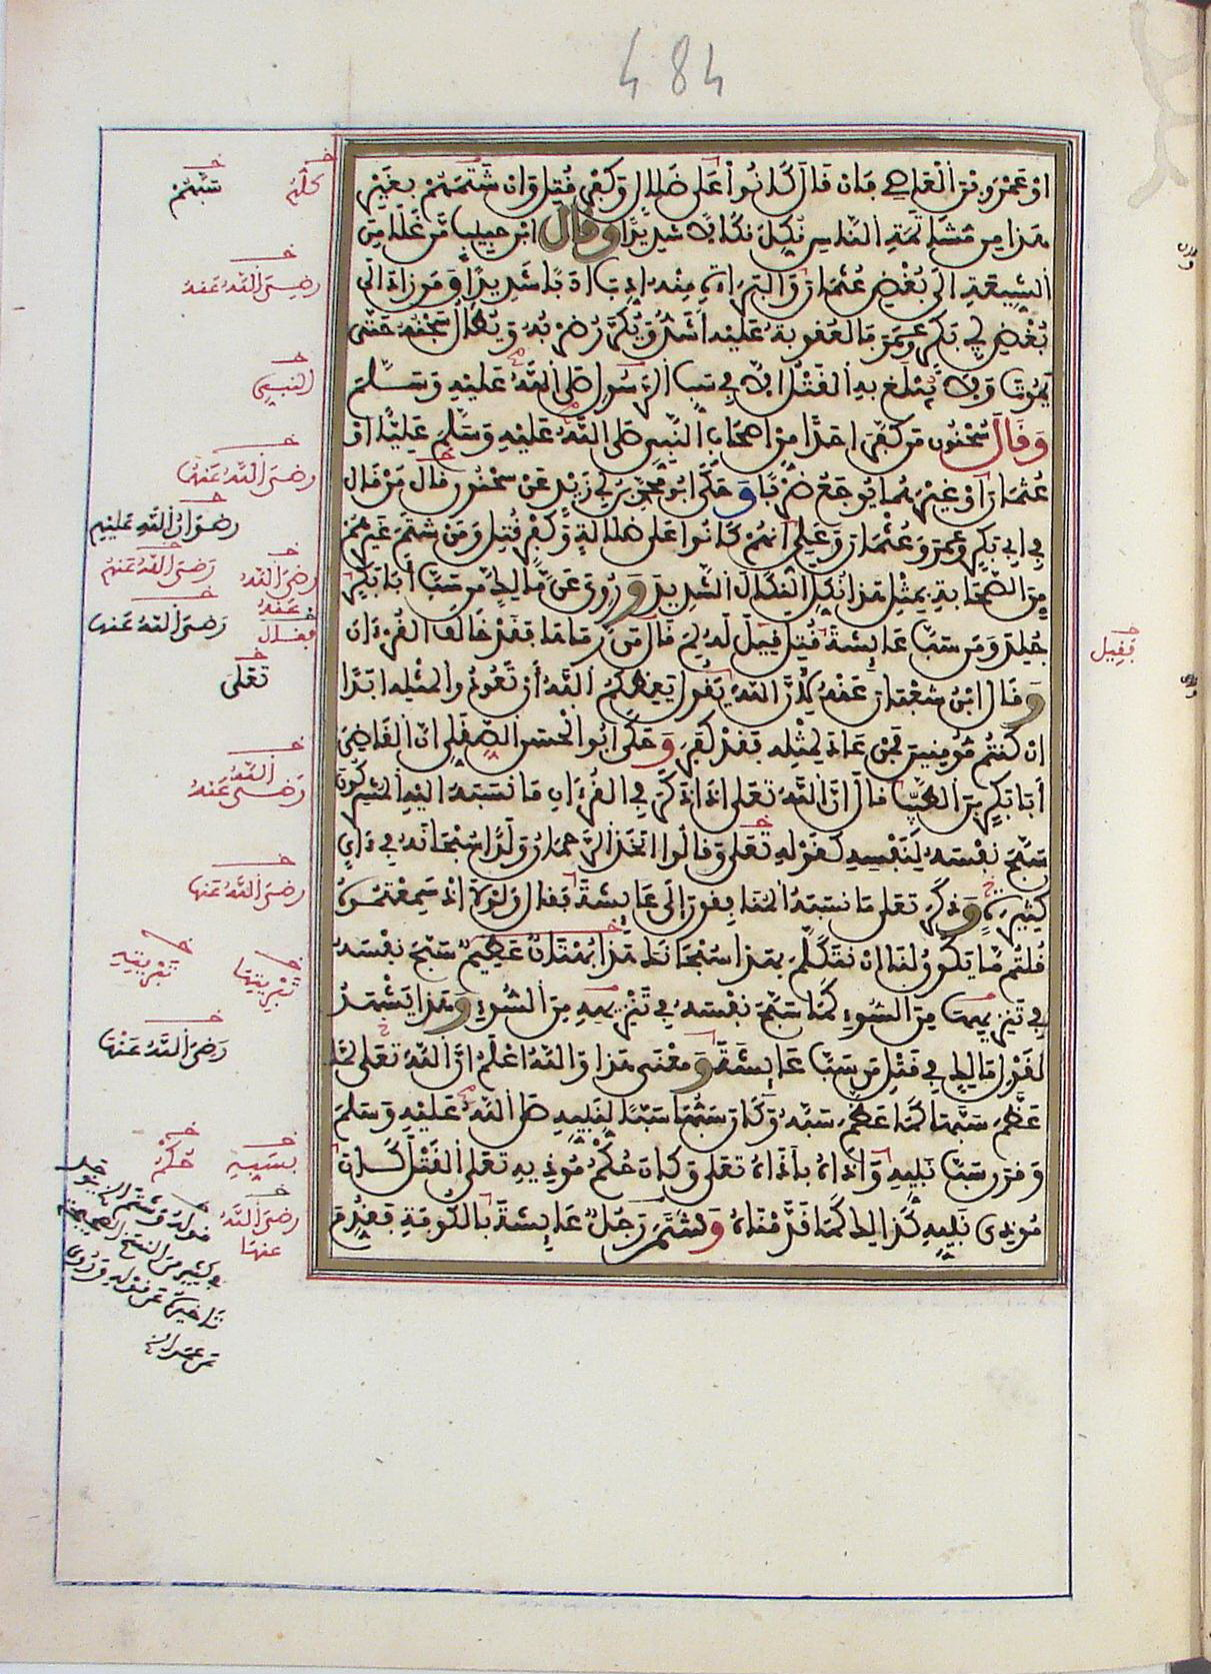 484
او عمرو بن العاصي فان قال كانوا على ضلال وكفر قتل وان شتمهم بغير
هذا من مشاتمة الناس نكل نكالا شديدا وقال ابن حبيب من غلا من
الشيعة الى بغض عثمان والبراءة منه ادب ادبا شديدا ومن زاد الى
بغض ابي بكر وعمر فالعقوبة عليه اشد ويكرر ضربه ويطال سجنه حتى
يموت ولا يبلغ به القتل الا في سب الرسول صلى الله عليه وسلم
وقال سحنون من كفر احدا من اصحاب النبي صلى الله عليه وسلم عليا او
عثمان او غيرهما يوجع ضربا وحكى ابو محمد بن ابي زيد عن سحنون قال من قال
في ابي بكر وعمر وعثمان وعلي انهم كانوا على ضلالة وكفر قتل ومن شتم غيرهم
من الصحابة بمثل هذا نكل النكال الشديد وروي عن مالك من سب أبا بكر
جلد ومن سب عايشة قتل قيل له لم قال من رماها فقد خالف القرءان
وقال ابن شعبان عنه لأن الله يقول يعظكم الله أن تعودوا لمثله ابدا
ان كنتم مؤمنين فمن عاد لمثله فقد كفر وحكى ابو الحسن الصقلي ان القاضي
أبا بكر بن الطيب قال ان الله تعلى اذا ذكر في القرءان ما نسبه اليه المشركون
سبح نفسه لنفسه كقوله تعلى وقالوا اتخذ الرحمان ولدا سبحانه في ءاي
كثيرة وذكر تعلى ما نسبه المنافقون إلى عايشة فقال ولولا اذ سمعتموه
قلتم ما يكون لنا ان نتكلم بهذا سبحانك هذا بهتان عظيم سبح نفسه
في تنزيهها من السوء كما سبح نفسه في تنزيهه من السوء وهذا يشهد
لقول مالك في قتل من سب عايشة ومعنى هذا والله اعلم ان الله تعلى لما
عظم سبها كما عظم سبه وكان سبها سبا لنبيه صلى الله عليه وسلم
وقرن سب نبيه واذاه بأذاه تعلى وكان حكم موذيه تعلى القتل كان
موذي نبيه كذلك كما قدمناه وشتم رجل عايشة بالكوفة فقدم
كلهم
سبهم
رضي الله عنه
النبي
رضي الله عنها
رضوان الله عليهم
رضي الله عنه
رضي الله عنهم
فقال
رضي الله عنها
فقيل
تعلى
رضي الله عنه
رضي الله عنها
تبريتها
تبريه
رضي الله عنها
بسبه
حكم
رضي الله عنها